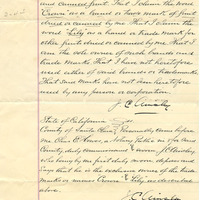 and canned fruit. That I claim the word
"Crown" as a brand or trade mark of fruit
dried or canned by me. That I claim the
word "Lily" as a brand or trade mark for
other fruits dried or canned by me. That I
am the sole owner of such brands and
trade marks. That I have not heretofore
used either of said brands or trademarks
that said marks have not been heretofore
used by any person or corporation.
J. C.
State of California
County of Santa Clara } ss. Personally came before
me a Notary Public in & for said
County, duly commissioned & sworn J. C.
who being by me first duly sworn deposes and
says that he is the exclusive owner of the trade
mark or names Crown & Lily as described
above.
J. C.